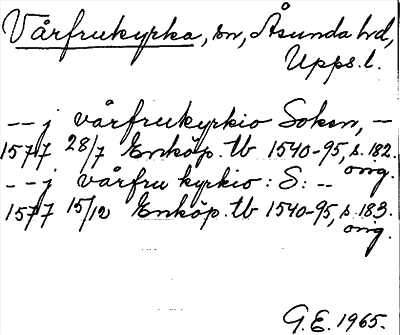 Vårfrukyrka, sn, Åsunda hd,
Upps. l.
-- j vårfrukyrkio Soken, --
1577 28/7 Enköp. tb 1540-95, s. 182.
orig.
- - j vårfru kyrkio : S : --
1577 15/12 Enköp. tb 1540-95, s. 183.
orig.
G.E. 1965.